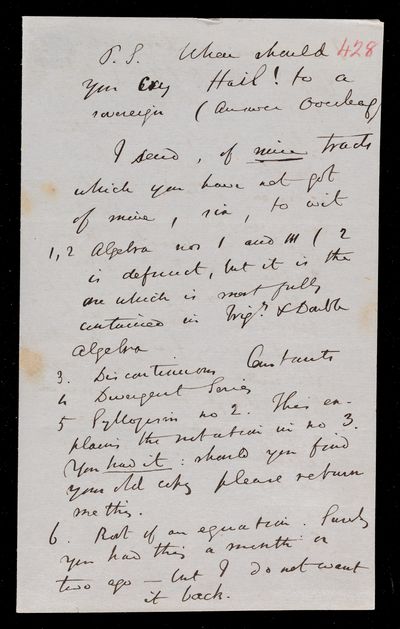 P.S. When should 428
you cry Hail! to a
sovereign (Answer Overleaf)
I send, of mine tracts
which you have not got
of mine, six, to wit
1, 2 Algebra nos 1 and III (2
is defunct, but it is the
one which is most fully
contained in Trigy. & Double
Algebra
3. Discontinuous Constants
4 Divergent Series
5 Syllogism no 2. This ex-
plains the notation in no 3.
You had it: should you find
your old copy please return
me this.
6. Root of an equation. Surely
you had this a month or
two ago – but I do not want
it back.